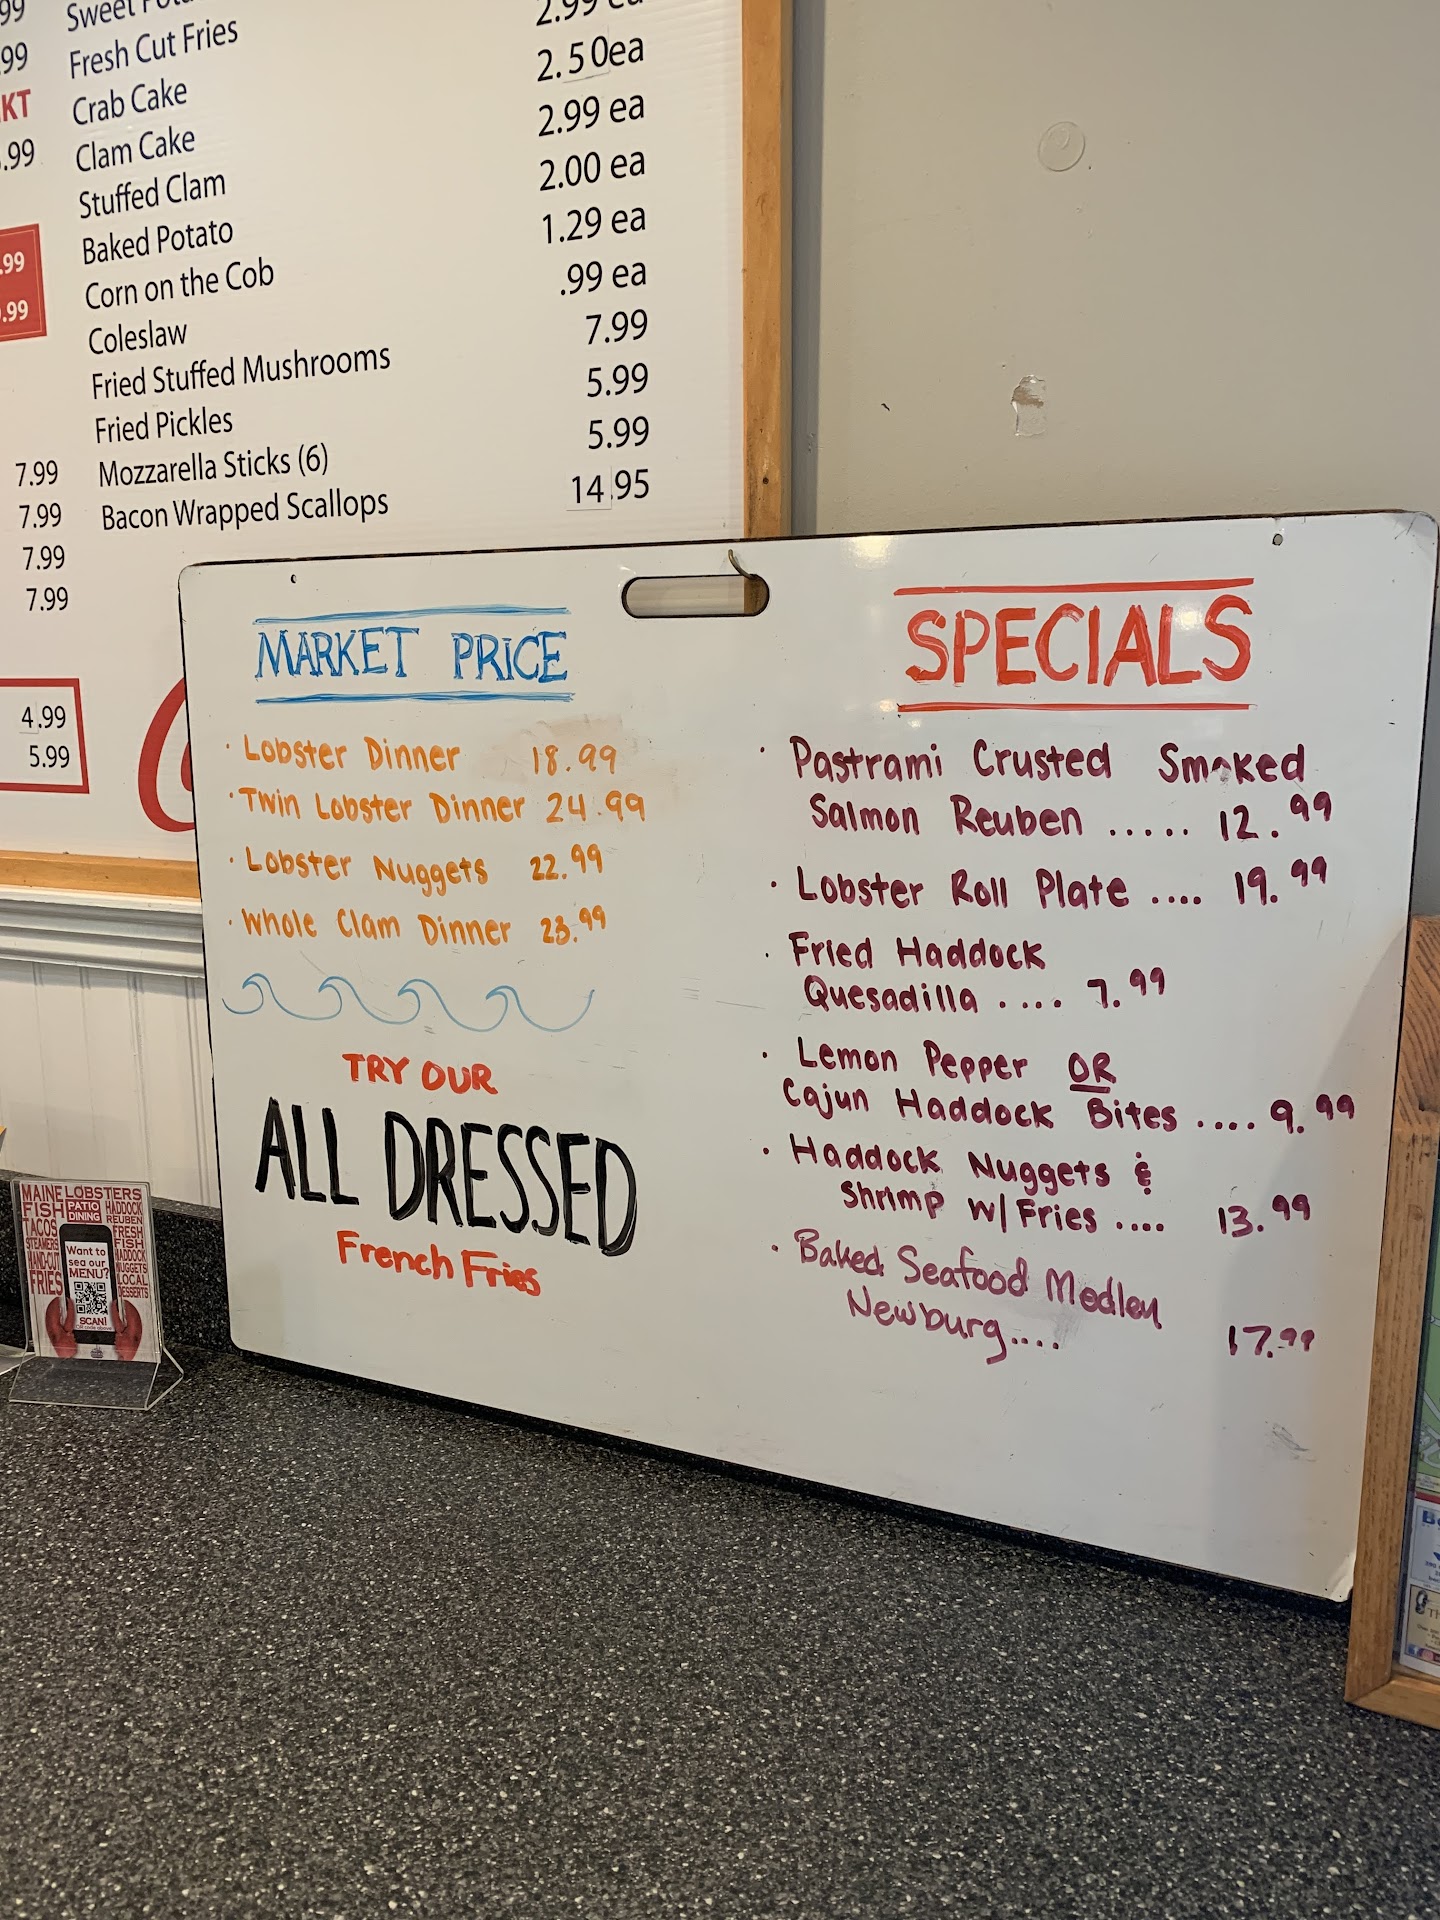 Fresh Cut Fries
Crab Cake
Clam Cake
Stuffed Clam
Baked Potato
Corn on the Cob
Coleslaw
Fried Stuffed Mushrooms
Fried Pickles
Mozzarella Sticks (6)
Bacon Wrapped Scallops
2.99 ea
2.50ea
2.99 ea
2.00 ea
1.29 ea
.99 ea
7.99
5.99
5.99
14.95
.99
KT
.99
.99
.99
7.99
7.99
7.99
7.99
4.99
5.99
MARKET PRICE
· Lobster Dinner 18.99
· Twin Lobster Dinner 24.99
· Lobster Nuggets 22.99
· Whole Clam Dinner 23.99
TRY OUR
ALL DRESSED
French Fries
SPECIALS
· Pastrami Crusted Smoked
Salmon Reuben ..... 12.99
· Lobster Roll Plate .... 19.99
· Fried Haddock
Quesadilla .... 7.99
· Lemon Pepper OR
Cajun Haddock Bites .... 9.99
· Haddock Nuggets &
Shrimp w/ Fries .... 13.99
· Baked Seafood Medley
Newburg.... 17.99
MAINE LOBSTERS
FISH
TACOS
STEAMERS
HAND-CUT
FRIES
PATIO
DINING
HADDOCK
REUBEN
FRESH
FISH
HADDOCK
NUGGETS
LOCAL
DESSERTS
Want to
see our
MENU?
SCAN!